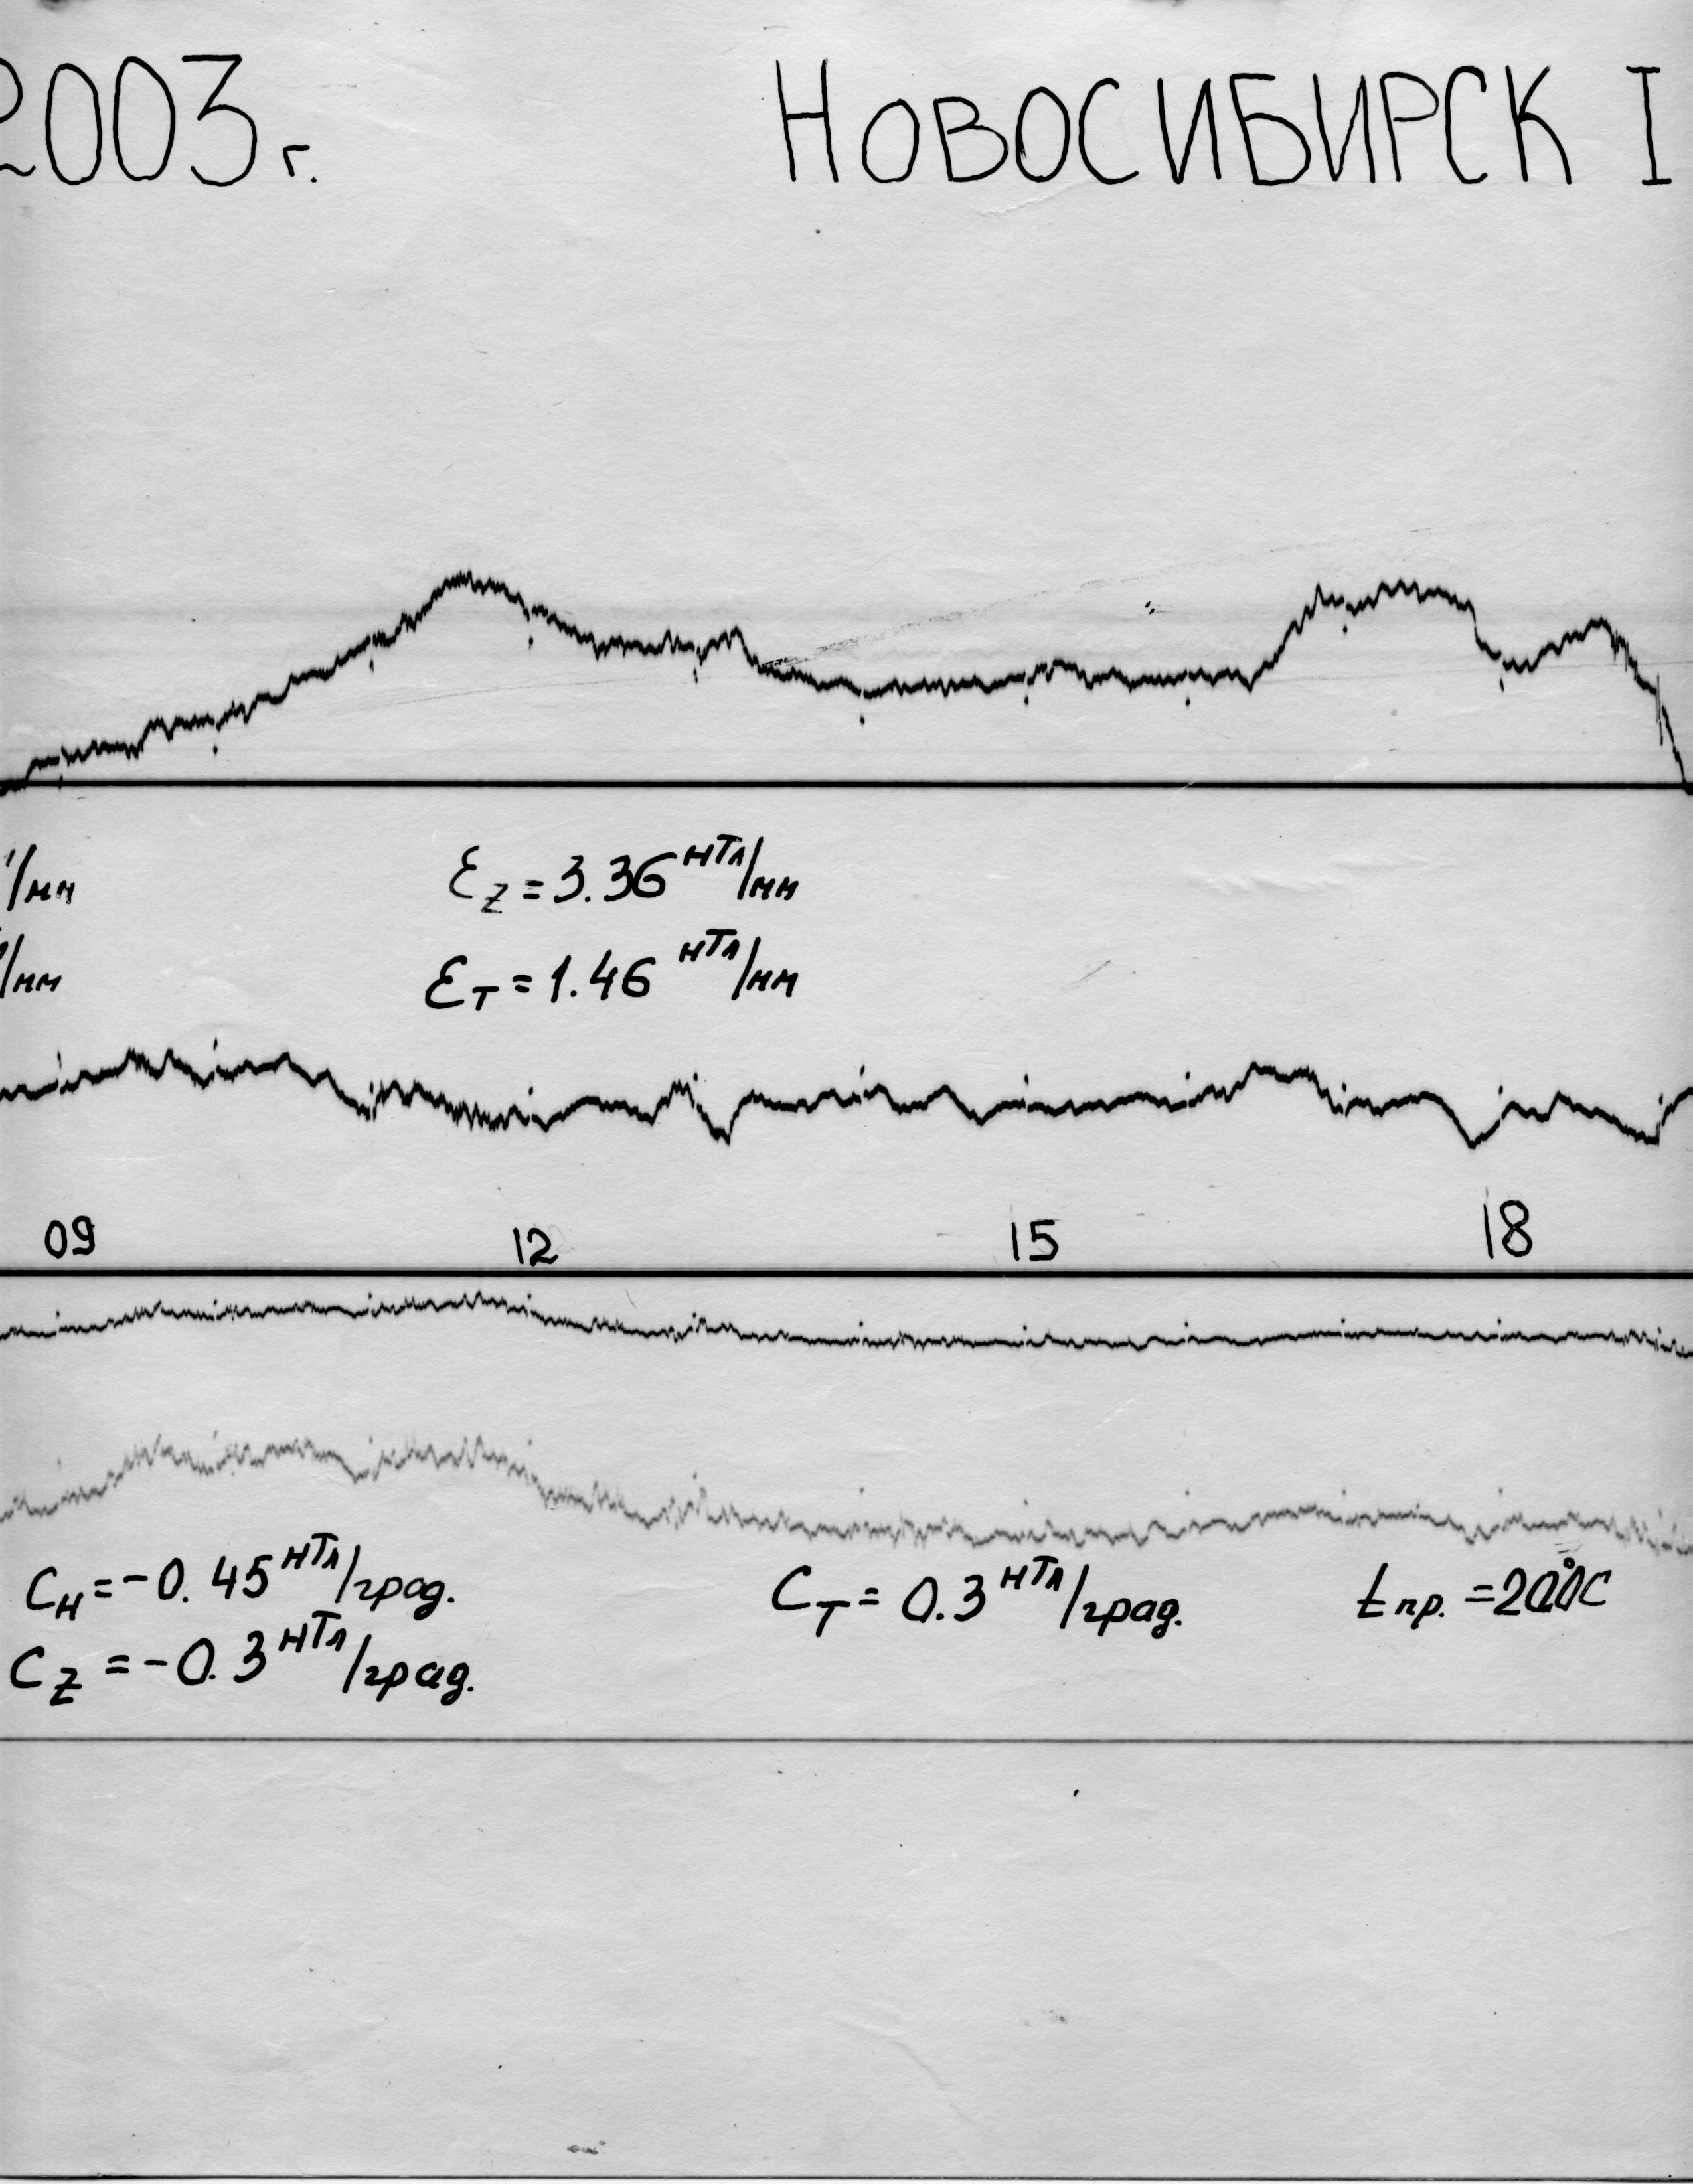 2003г. НОВОСИБИРСК I
'/мм εz = 3.36 нТл/мм
/мм εT = 1.46 нТл/мм
09 12 15 18
CH = -0.45 нТл/град. CT = 0.3 нТл/град. t пр. = 20°C
CZ = -0.3 нТл/град.